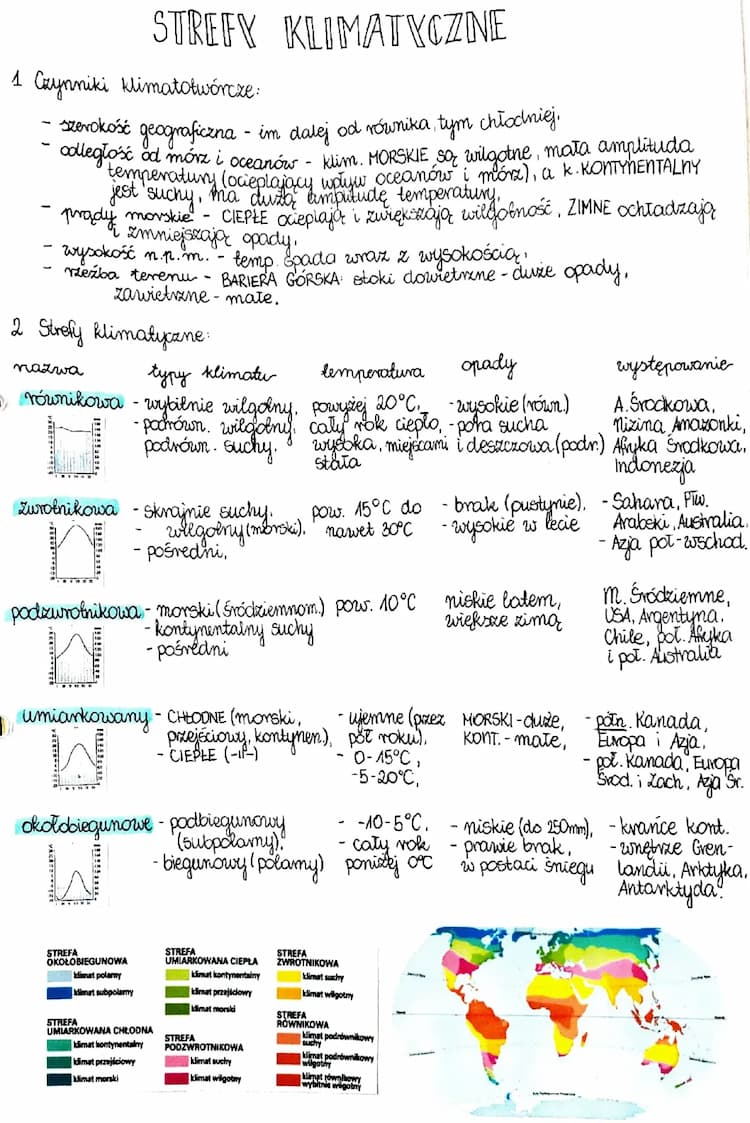 STREFY KLIMATYCZNE
1 Czynniki klimatotwórcze:
- szerokość geograficzna - im dalej od równika, tym chłodniej.
- odległość od mórz i oceanów - klim. MORSKIE są wilgotne, mała amplituda
temperatury (ocieplający wpływ oceanów i mórz), a k. KONTYNENTALNY
jest suchy, ma dużą amplitudę temperatury,
- prądy morskie - CIEPŁE ocieplają i zwiększają wilgotność, ZIMNE ochładzają
i zmniejszają opady,
- wysokość n.p.m. - temp. spada wraz z wysokością,
- rzeźba terenu - BARIERA GÓRSKA: stoki dowietrzne - duże opady,
zawietrzne - małe.
2 Strefy klimatyczne:
nazwa typy klimatu temperatura opady występowanie
równikowa - wybitnie wilgotny, powyżej 20°C, - wysokie (równ.) A. Środkowa,
- podrówn. wilgotny, cały rok ciepło, - pora sucha Nizina Amazonki,
podrówn. suchy. wysoka, miejscami i deszczowa (podr.) Afryka Środkowa,
stała Indonezja
zwrotnikowa - skrajnie suchy. pow. 15°C do - brak (pustynie), - Sahara, Płw.
- wilgotny (morski), nawet 30°C - wysokie w lecie Arabski, Australia.
- pośredni, - Azja poł-wschod.
podzwrotnikowa - morski (śródziemnom.) pow. 10°C niskie latem, M. Śródziemne,
- kontynentalny suchy większe zimą USA, Argentyna,
- pośredni Chile, poł. Afryka
i poł. Australia
umiarkowany - CHŁODNE (morski, - ujemne (przez MORSKI - duże, - półn. Kanada,
przejściowy, kontynen.), pół roku), KONT. - małe, Europa i Azja,
- CIEPŁE (-||-) - 0-15°C, - poł. Kanada, Europa
-5-20°C, Środ. i Zach, Azja Śr.
okołobiegunowe - podbiegunowy - -10-5°C, - niskie (do 250mm), - krańce kont.
(subpolarny), - cały rok - prawie brak, - wnętrze Gren-
- biegunowy (polarny) poniżej 0°C w postaci śniegu landii, Arktyka,
Antarktyda.
STREFA
OKOŁOBIEGUNOWA
klimat polarny
klimat subpolarny
STREFA
UMIARKOWANA CHŁODNA
klimat kontynentalny
klimat przejściowy
klimat morski
STREFA
UMIARKOWANA CIEPŁA
klimat kontynentalny
klimat przejściowy
klimat morski
STREFA
PODZWROTNIKOWA
klimat suchy
klimat wilgotny
STREFA
ZWROTNIKOWA
klimat suchy
klimat wilgotny
STREFA
RÓWNIKOWA
klimat podrównikowy
suchy
klimat podrównikowy
wilgotny
klimat równikowy
wybitnie wilgotny